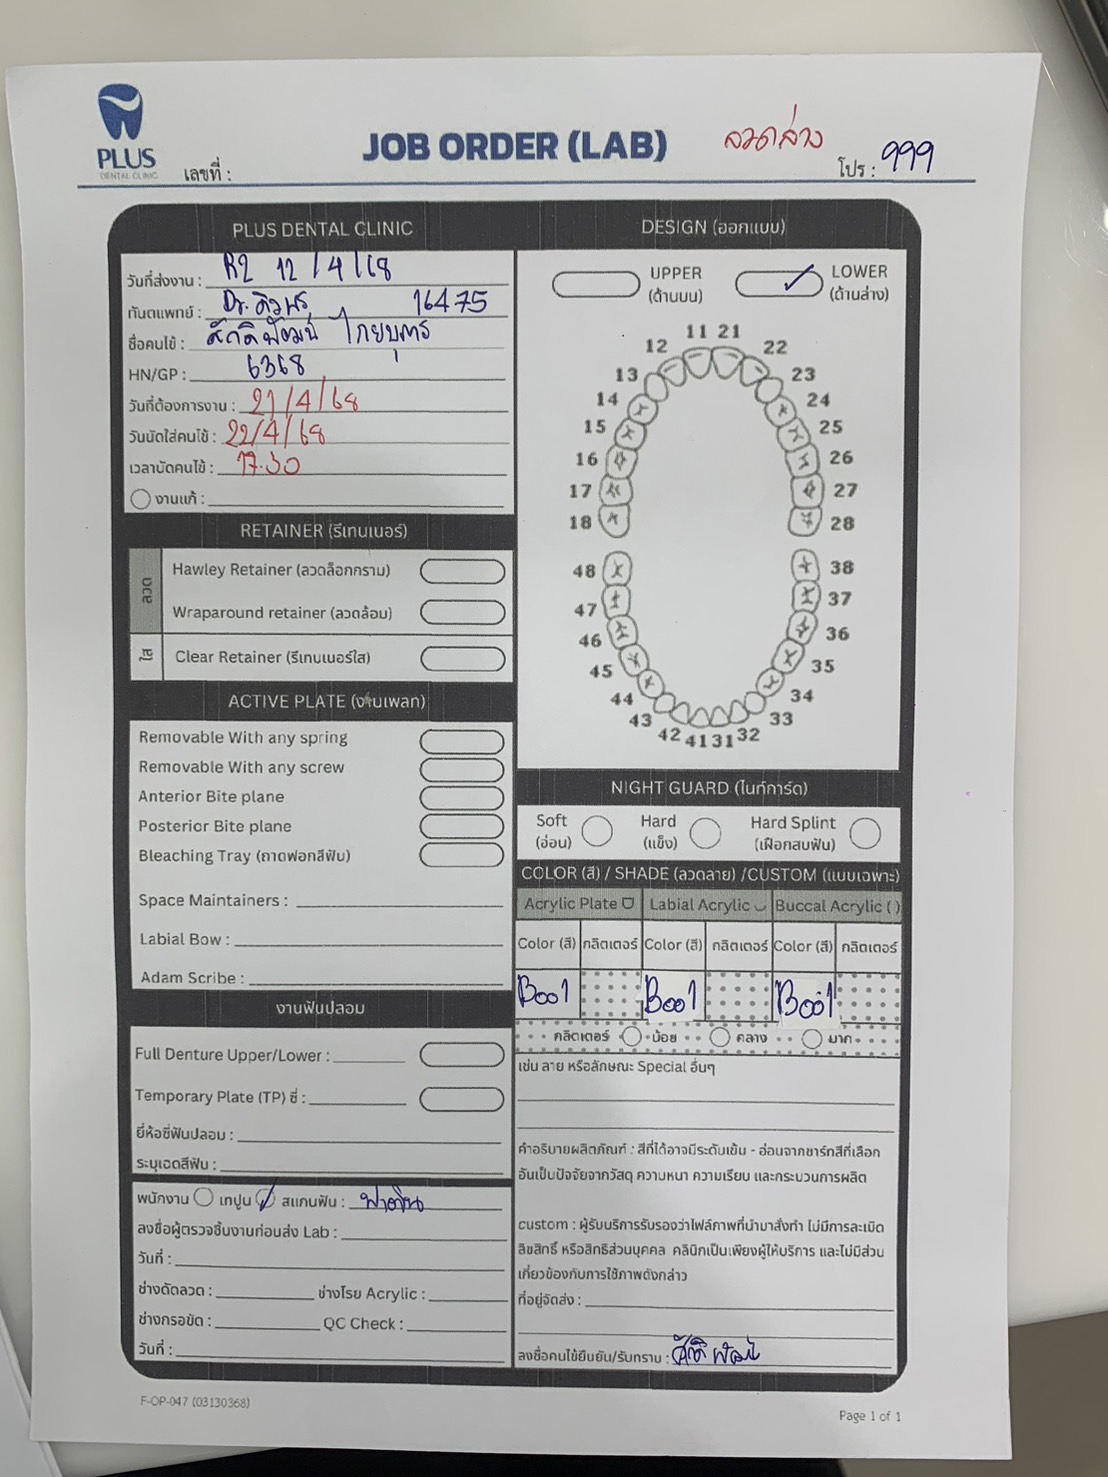 PLUS
DENTAL CLINIC
JOB ORDER (LAB)
ลวดล่าง
เลขที่ :
โปร : 999
PLUS DENTAL CLINIC
วันที่ส่งงาน : R2 12/4/68
ทันตแพทย์ : Dr. 16475
ชื่อคนไข้ : ศักดิ์พัฒน์ ไกยบุตร
HN/GP : 6368
วันที่ต้องการงาน : 21/4/68
วันนัดใส่คนไข้ : 22/4/68
เวลานัดคนไข้ : 17.30
งานแก้ :
RETAINER (รีเทนเนอร์)
ลวด
Hawley Retainer (ลวดล็อกกราม)
Wraparound retainer (ลวดล้อม)
ใส
Clear Retainer (รีเทนเนอร์ใส)
ACTIVE PLATE (งานเพลท)
Removable With any spring
Removable With any screw
Anterior Bite plane
Posterior Bite plane
Bleaching Tray (ถาดฟอกสีฟัน)
Space Maintainers :
Labial Bow :
Adam Scribe :
งานฟันปลอม
Full Denture Upper/Lower :
Temporary Plate (TP) ซี่ :
ยี่ห้อซี่ฟันปลอม :
ระบุเฉดสีฟัน :
พนักงาน เทปูน สแกนฟัน :
ลงชื่อผู้ตรวจชิ้นงานก่อนส่ง Lab :
วันที่ :
ช่างดัดลวด : ช่างโรย Acrylic :
ช่างกรอขัด : QC Check :
วันที่ :
DESIGN (ออกแบบ)
UPPER (ด้านบน)
LOWER (ด้านล่าง)
11 21
12 22
13 23
14 24
15 25
16 26
17 27
18 28
48 38
47 37
46 36
45 35
44 34
43 33
42 41 31 32
NIGHT GUARD (ไนท์การ์ด)
Soft (อ่อน)
Hard (แข็ง)
Hard Splint (เฝือกสบฟัน)
COLOR (สี) / SHADE (ลวดลาย) /CUSTOM (แบบเฉพาะ)
Acrylic Plate Labial Acrylic Buccal Acrylic ( )
Color (สี) กลิตเตอร์ Color (สี) กลิตเตอร์ Color (สี) กลิตเตอร์
B001 B001 B001
กลิตเตอร์ น้อย กลาง มาก
เช่น ลาย หรือลักษณะ Special อื่นๆ
คำอธิบายผลิตภัณฑ์ : สีที่ได้อาจมีระดับเข้ม - อ่อนจากชาร์ทสีที่เลือก
อันเป็นปัจจัยจากวัสดุ ความหนา ความเรียบ และกระบวนการผลิต
custom : ผู้รับบริการรับรองว่าไฟล์ภาพที่นำมาสั่งทำ ไม่มีการละเมิด
ลิขสิทธิ์ หรือสิทธิส่วนบุคคล คลินิกเป็นเพียงผู้ให้บริการ และไม่มีส่วน
เกี่ยวข้องกับการใช้ภาพดังกล่าว
ที่อยู่จัดส่ง :
ลงชื่อคนไข้ยืนยัน/รับทราบ : ศักดิ์พัฒน์
F-OP-047 (03130368)
Page 1 of 1